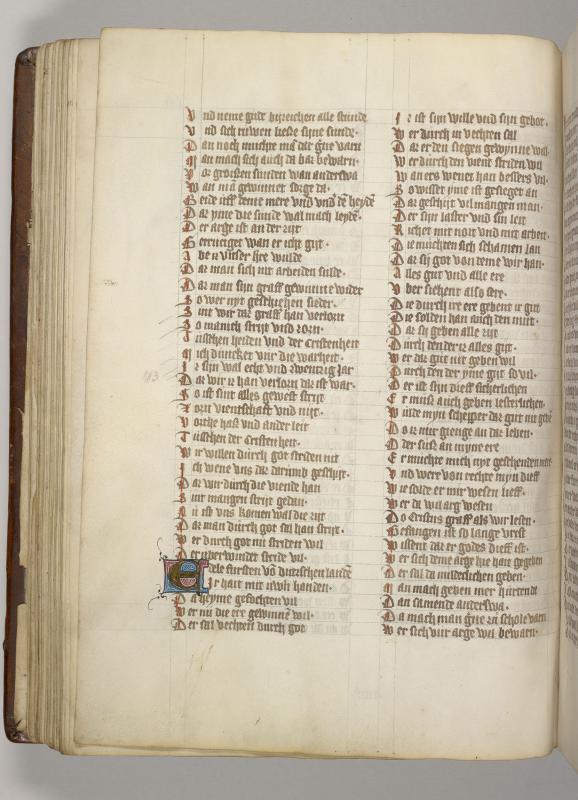 Vnd neme gude bizeichen alle stunde
Vnd sich ruwen liesse sine sunde·
Dan noch muchte mā dar gūe varn
Man mach sich auch da baz bewarn·
Vor groissen sunden wan anderswa
Wan mā gewinnet sorge da·
Beide uff deme mere vnd vnd dē heydē
Dar yme die sunde wal mach leydē·
Der arge ist an der zijt
Gerenwiget wan er icht gijt·
Aber in vnser hre wulde
Dar man sich nit arbeiden sulde·
Dar man sijn graff gewinne wider
So wer nye geschiehen sieder·
Sint wir daz graff han verlorn
So manich strijt vnd zorn·
Tuschen heiden vnd der cristenheit
Mich duncket vur die warheit·
Ir sijn wal echt vnd zwentzig jar
Dar wir iz han verlorn daz ist war·
So ist sint alles gewest strijt
Zorn vientschafft vnd nijt·
Vorthe haß vnd ander leit
Tuschen der Cristen heit·
Wir willen durch got striden nit
Ich wene vns daz darumb geschijt·
Dar wir durch die viende han
Sint mangen strijt gedan·
Nu ist vns komen wal die zijt
Dar man durch got sal han strijt·
Wer durch got nu striden wil
Der uber windet stride vil·
Edele fursten vō dutzschen landē
Ir hait mit uwn handen·
Da heyme gefochten vil
Wer nu die ere gewinnē wil·
Der sal vechten durch got
Iz ist sijn wille vnd sijn gebot·
Wer durch in vechten sal
Dar er den siegen gewynne wal·
Wer durch den vient striden wil
Wan ers wenet han bessers vil·
So wisset yme ist gesieget an
Daz geschijt vil mangen man·
Der sijn laster vnd sin leit
Richet mit nort vnd mit arbeit·
Die muchten sich schamen lan
Daz sij got von deme wir han·
Alles gut vnd alle ere
Vber siehent also sere·
Die durch ire ere gebent ir gut
Die solden han auch den mut·
Daz sij geben alle zijt
Durch den der iz alles gijt·
Wer daz gut nit geben wil
Durch den der yme git so vil·
Der ist sijn dieff sicherlichen
Er muß auch geben lesterlichen·
Wurde myn schepper daz gut nit gebē
So iz mir gienge an daz leben·
Der suß an myne ere
Er muchte mich nye geschenden mere
Vnd were von rechte myn dieff
Wie solde er mir wesen lieff·
Wer da wil arg wesen
Do Cristus graff als wir lesen·
Gefangen ist so lange vrest
Wissent daz er godes dieff ist·
Wer sich deme arge hie han gegeben
Der sal da mildeclichen geben·
Man mach geben mer hurtende
Dan samende anderswa·
Da mach man gūe zu schole varn
Wer sich vur arge wil bewarn·